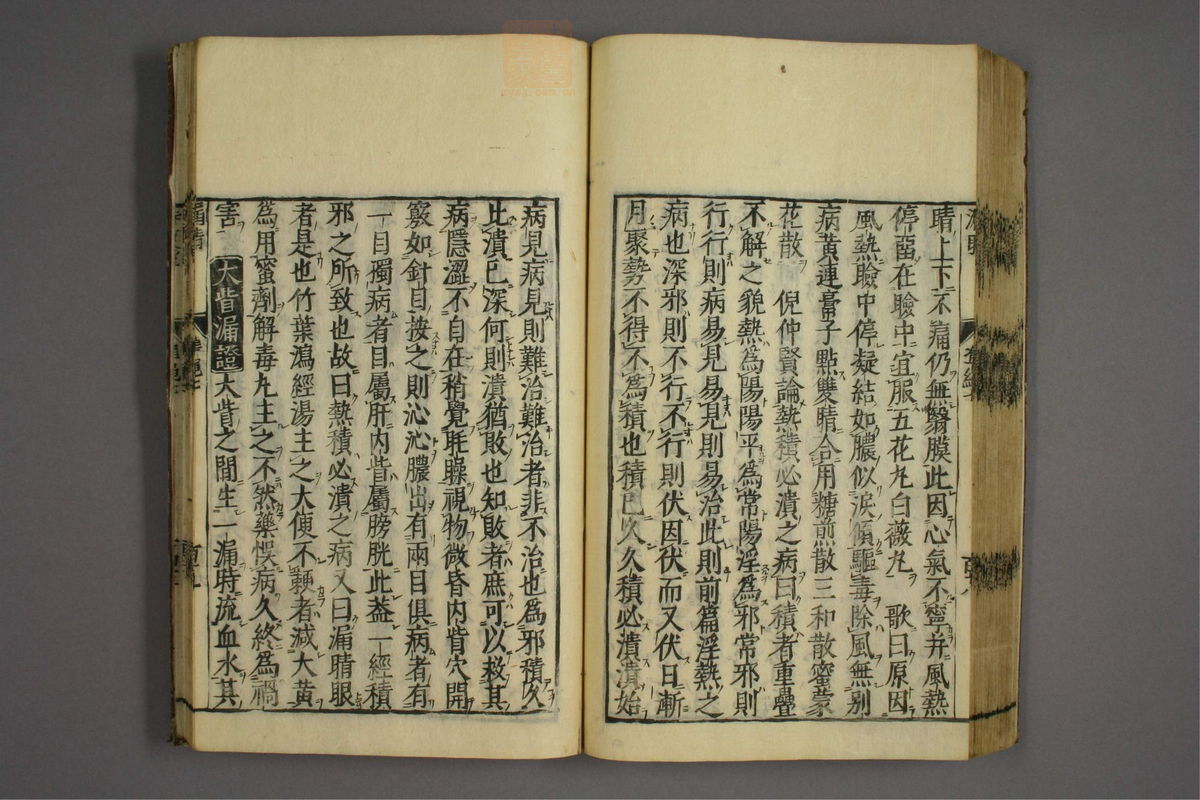 睛上下不痛仍無翳膜此因心氣不寧并風熱
停留在瞼中宜服五花丸白薇丸 歌曰原因
風熱瞼中停凝結如膿似淚傾驅毒除風無別
病黃連膏子點雙睛合用糖煎散三和散蜜蒙
花散 倪仲賢論熱積必潰之病曰積者重疊
不解之貌熱為陽陽平為常陽淫為邪常邪則
行行則病易見易見則易治此則前篇淫熱之
病也深邪則不行不行則伏因伏而又伏日漸
月聚勢不得不為積也積已久久積必潰潰始
病見病見則難治難治者非不治也為邪積久
此潰已深何則潰猶敗也知敗者庶可以救其
病隱澀不自在稍覺眊矂視物微昏內眥穴開
竅如針目按之則沁沁膿出有兩目俱病者有
一目獨病者目屬肝內眥屬膀胱此蓋一經積
邪之所致也故曰熱積必潰之病又曰漏睛眼
者是也竹葉瀉經湯主之大便不䩕者減大黃
為用蜜劑解毒丸主之不然藥悞病久終為禍
害 大眥漏證 大眥之間生一漏時流血水其